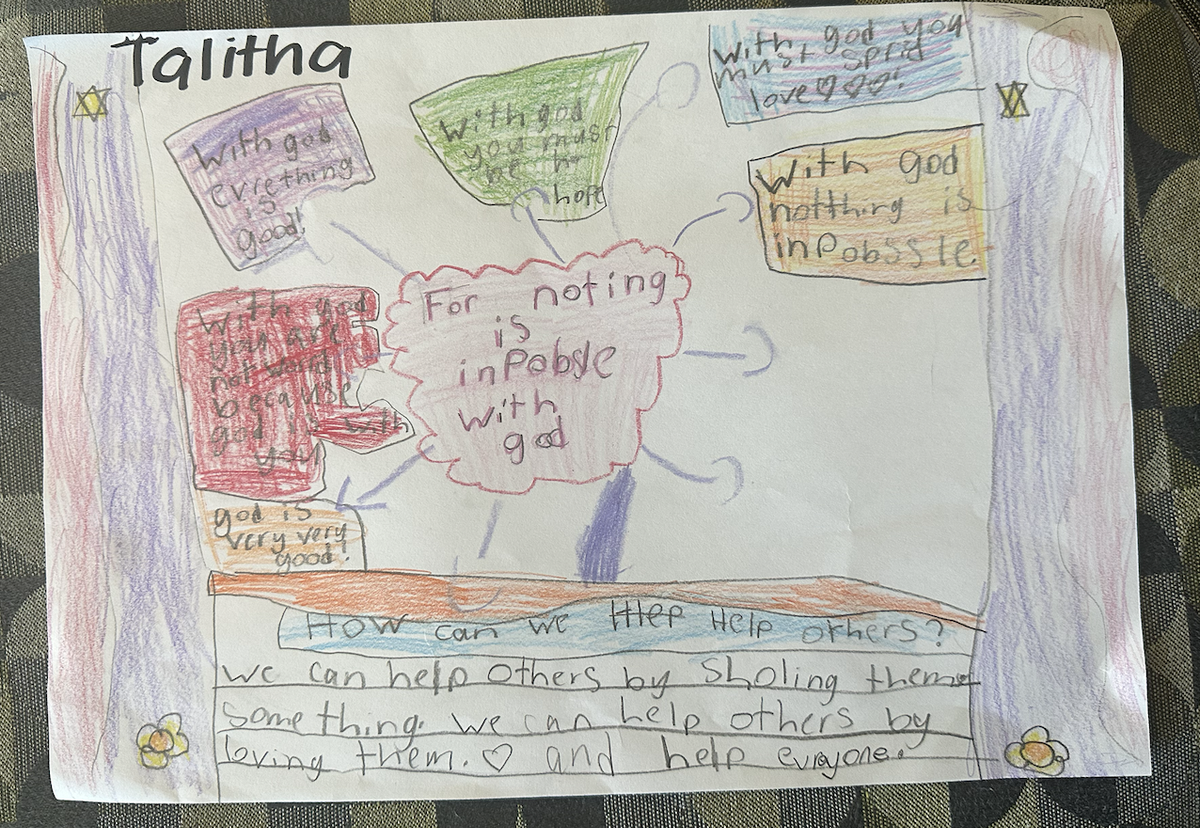 Talitha
With god
evrething
is
good!
With god
you must
be in
hope
With god you
must sprid
love♡♡♡!
With god
notthing is
inpobssle.
With god
you are
not
because
god is with
you
For noting
is
inpobsle
with
god
god is
very very
good!
How can we Hlep Help others?
We can help others by Sholing them
something. We can help others by
loving them.♡ and help everyone.